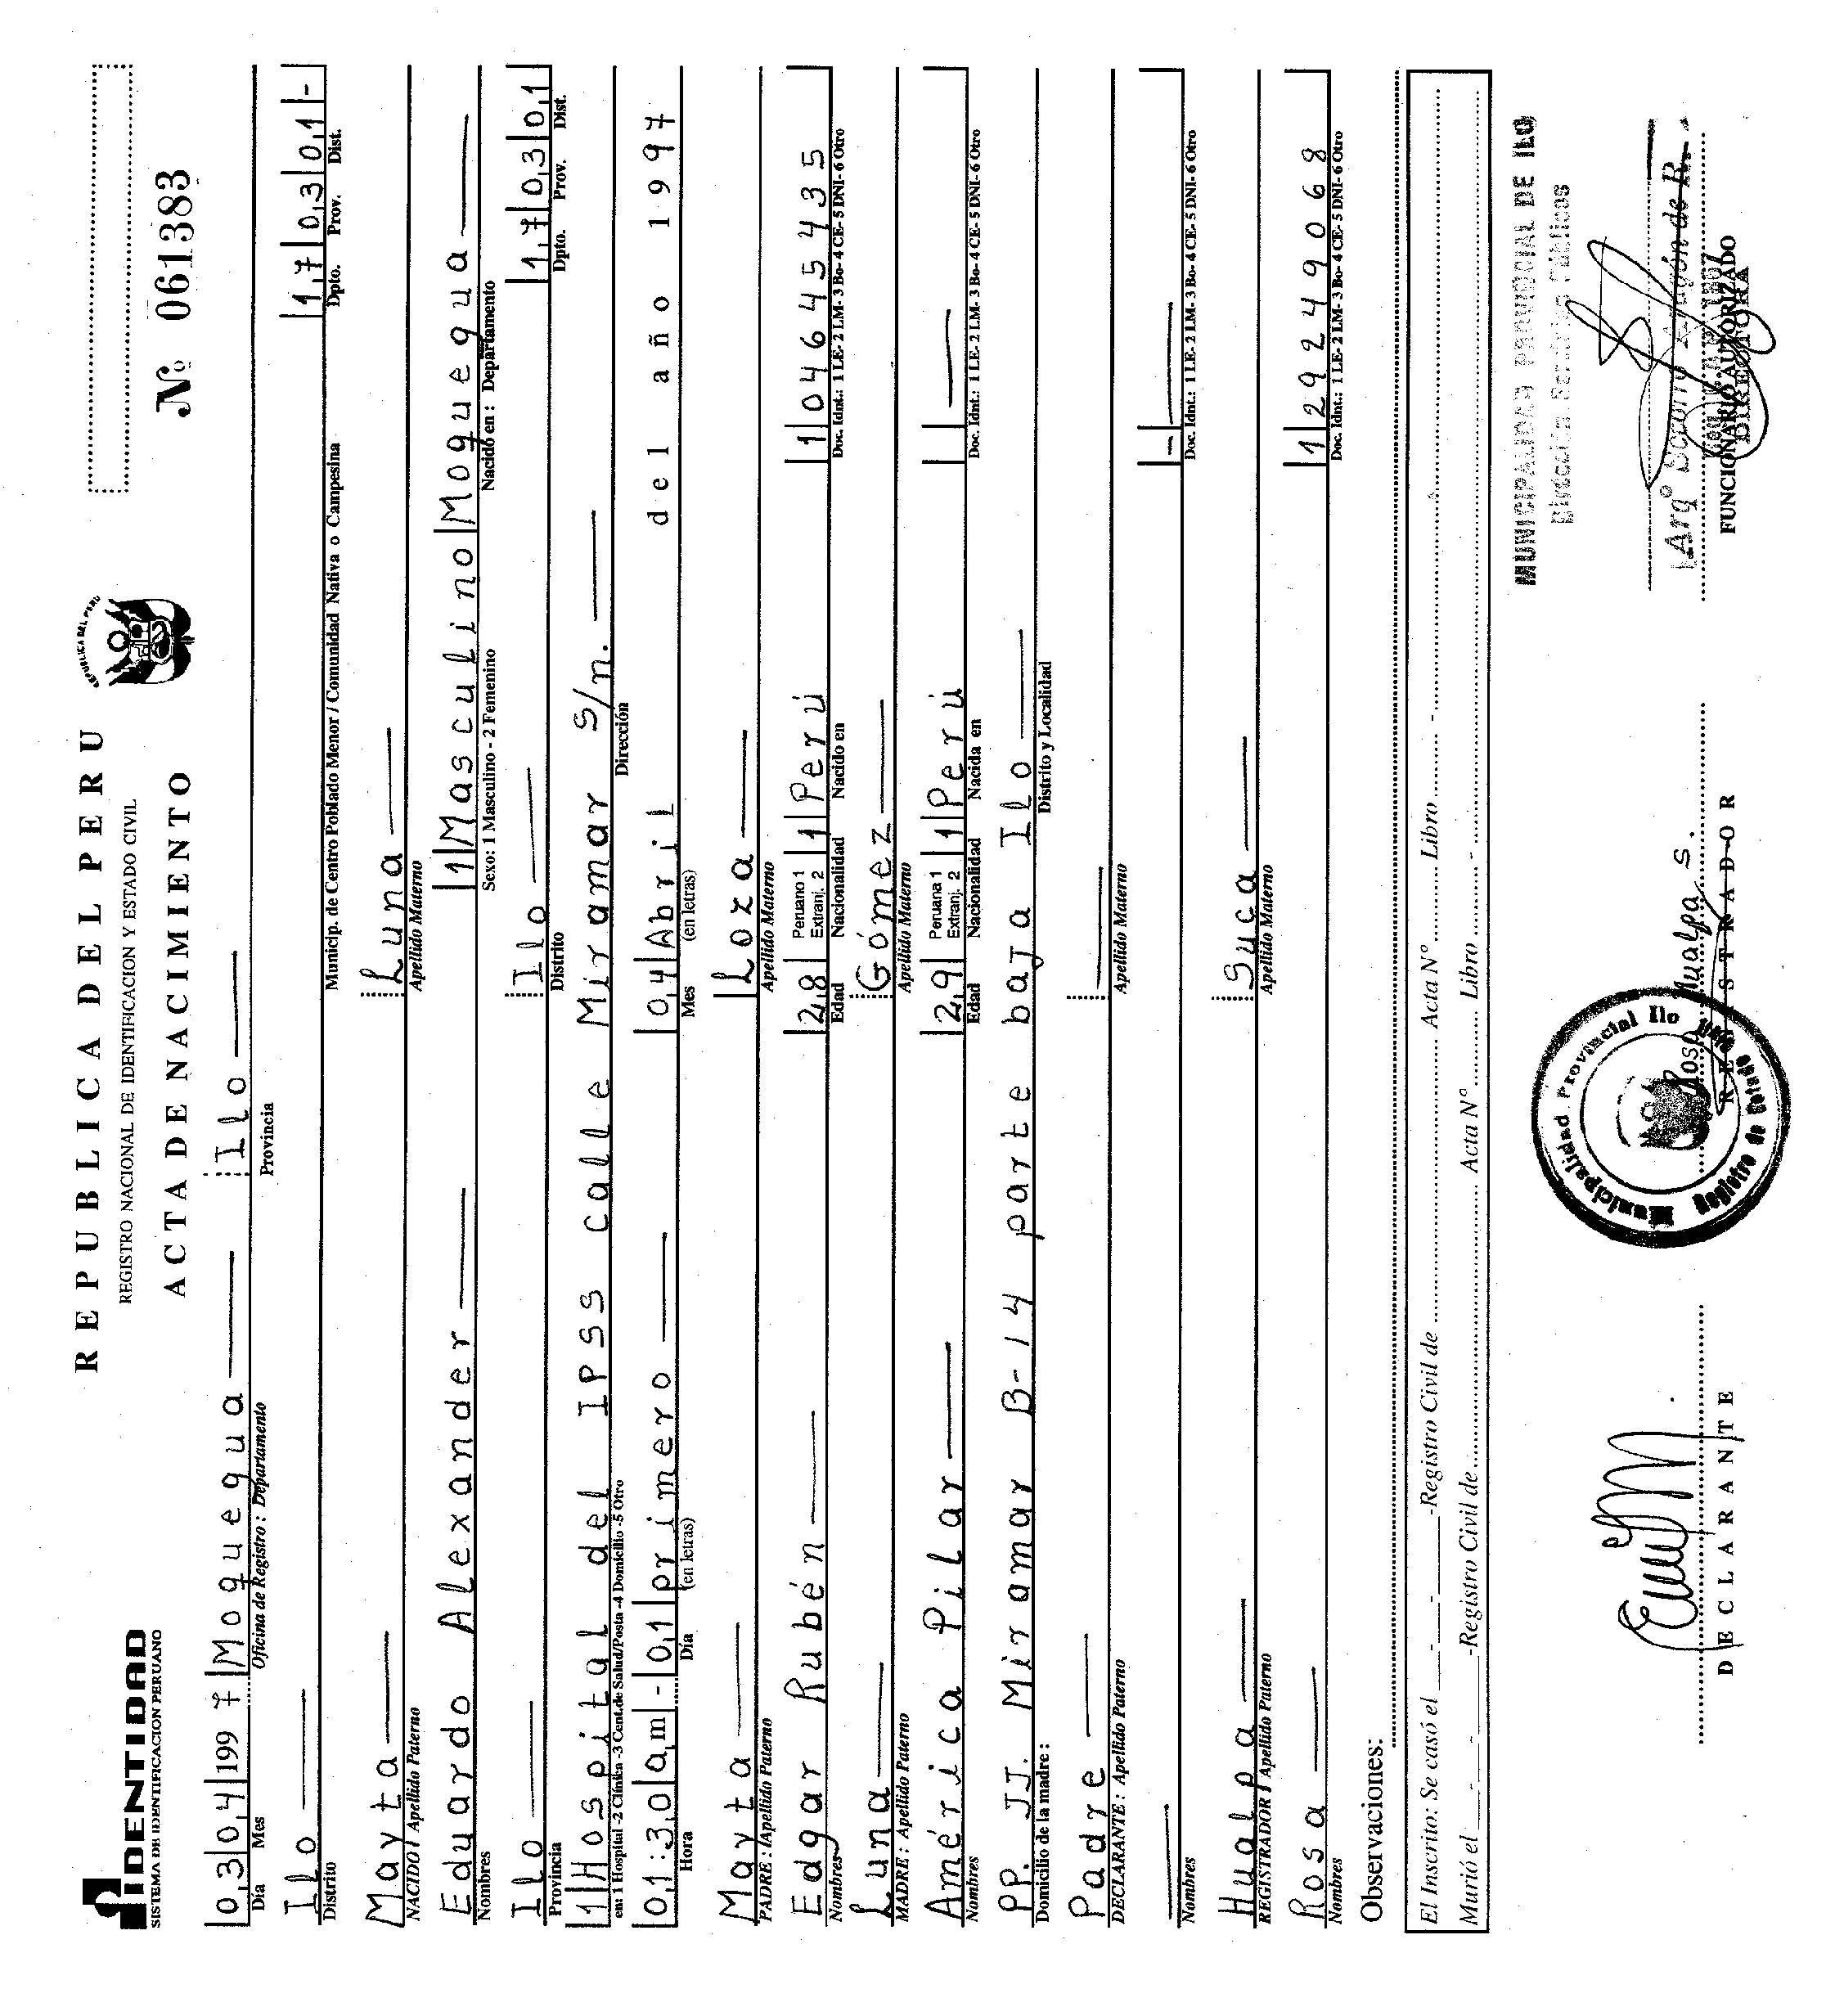 IDENTIDAD
SISTEMA DE IDENTIFICACION PERUANO
REPUBLICA DEL PERU
REPUBLICA DEL PERU
REGISTRO NACIONAL DE IDENTIFICACION Y ESTADO CIVIL
ACTA DE NACIMIENTO
Nº 061383
03 04 1997 Moquegua Ilo
Día Mes Oficina de Registro : Departamento Provincia
Ilo 17 03 01 -
Distrito Municip. de Centro Poblado Menor / Comunidad Nativa o Campesina Dpto. Prov. Dist.
Mayta Luna
NACIDO / Apellido Paterno Apellido Materno
Eduardo Alexander 1 Masculino Moquegua
Nombres Sexo: 1 Masculino - 2 Femenino Nacido en : Departamento
Ilo Ilo 17 03 01
Provincia Distrito Dpto. Prov. Dist.
1 Hospital del IPSS calle Miramar S/n.
en: 1 Hospital -2 Clínica -3 Cent.de Salud/Posta -4 Domicilio -5 Otro Dirección
01:30 am - 01 primero 04 Abril del año 1997
Hora Día (en letras) Mes (en letras)
Mayta Loza
PADRE : Apellido Paterno Apellido Materno
Edgar Rubén 28 Peruano 1 Extranj. 2 1 Perú 1 04645435
Nombres Edad Nacionalidad Nacido en Doc. Idnt.: 1 LE- 2 LM- 3 Bo- 4 CE- 5 DNI- 6 Otro
Luna Gómez
MADRE : Apellido Paterno Apellido Materno
América Pilar 29 Peruana 1 Extranj. 2 1 Perú
Nombres Edad Nacionalidad Nacida en Doc. Idnt.: 1 LE- 2 LM- 3 Bo- 4 CE- 5 DNI- 6 Otro
PP. JJ. Miramar B-14 parte baja Ilo
Domicilio de la madre : Distrito y Localidad
Padre
DECLARANTE : Apellido Paterno Apellido Materno
Nombres Doc. Idnt.: 1 LE- 2 LM- 3 Bo- 4 CE- 5 DNI- 6 Otro
Hualpa Suca
REGISTRADOR / Apellido Paterno Apellido Materno
Rosa 1 29249068
Nombres Doc. Idnt.: 1 LE- 2 LM- 3 Bo- 4 CE- 5 DNI- 6 Otro
Observaciones:
El Inscrito: Se casó el - - -Registro Civil de Acta Nº Libro -
Murió el - - -Registro Civil de Acta Nº Libro -
MUNICIPALIDAD PROVINCIAL DE ILO
Dirección Servicios Públicos
Municipalidad Provincial Ilo
Registro de Estado
Rosa Hualpa S.
Arqº Socorro Aragón de R.
DECLARANTE
REGISTRADOR
FUNCIONARIO AUTORIZADO
DIRECTORA